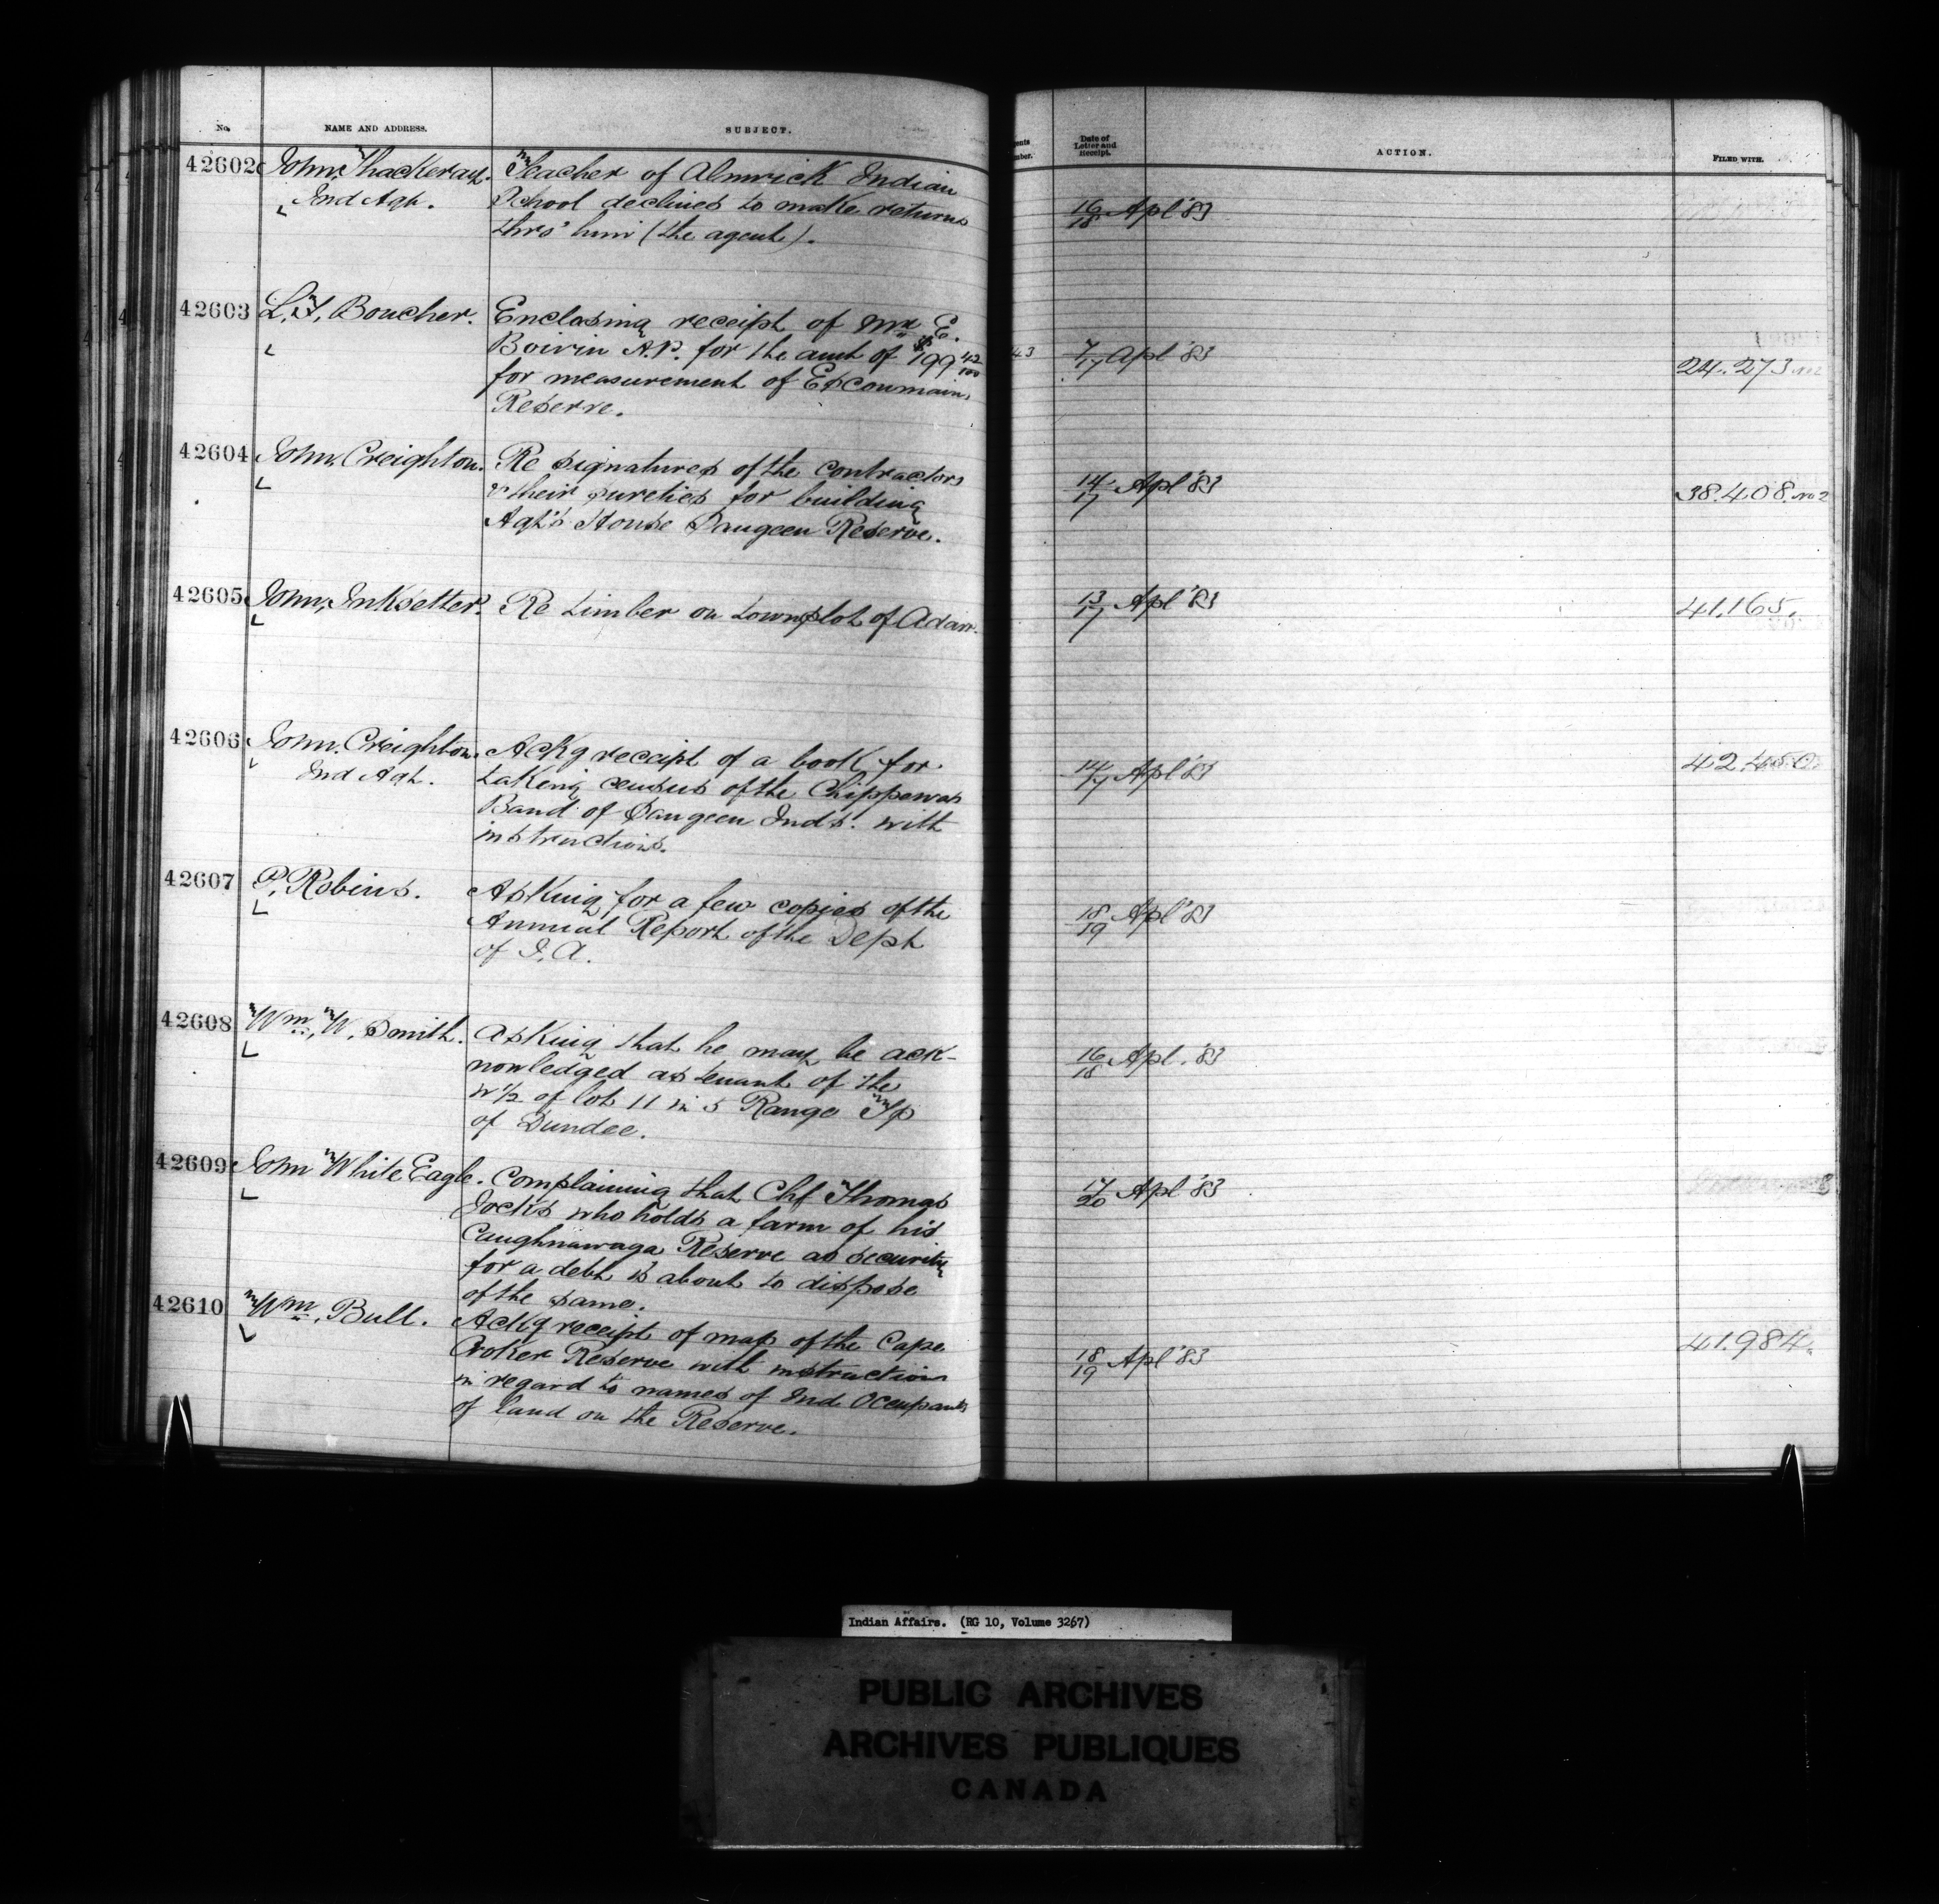 No. NAME AND ADDRESS. SUBJECT. Date of Letter and Receipt. ACTION. FILED WITH.
42602 John Thackeray. Teacher of Alnwick Indian
Ind Agt. School declines to make returns
thro' him (the agent).
16/18 Apl '83
42603 L. F. Boucher. Enclosing receipt of Mr E.
Boivin N.P. for the amt of $199 42/100
for measurement of Escoumain
Reserve.
7/17 Apl '83
24.273 No 2
42604 John Creighton. Re signatures of the contractors
& their sureties for building
Agt's House Saugeen Reserve.
14/17 Apl '83
38.408. No 2
42605 John Inksetter. Re timber on townplot of Adair.
13/17 Apl '83
41,165.
42606 John. Creighton. Ackg receipt of a book for
Ind Agt. taking census of the Chippewas
Band of Saugeen Ind's. with
instructions.
14/17 Apl '83
42.450
42607 P. Robins. Asking for a few copies of the
Annual Report of the Dept
of I. A.
18/19 Apl '83
42608 Wm. W. Smith. Asking that he may be ack-
nowledged as tenant of the
W 1/2 of lot 11 in 5 Range Tp
of Dundee.
16/18 Apl. '83
42609 John White Eagle. Complaining that Chf Thomas
Jocks who holds a farm of his
Caughnawaga Reserve as security
for a debt is about to dispose
of the same.
17/20 Apl '83
42610 Wm. Bull. Ackg receipt of map of the Cape
Croker Reserve with instruction
in regard to names of Ind Occupants
of land on the Reserve.
18/19 Apl '83
41.984.
Indian Affairs. (RG 10, Volume 3267)
PUBLIC ARCHIVES
ARCHIVES PUBLIQUES
CANADA